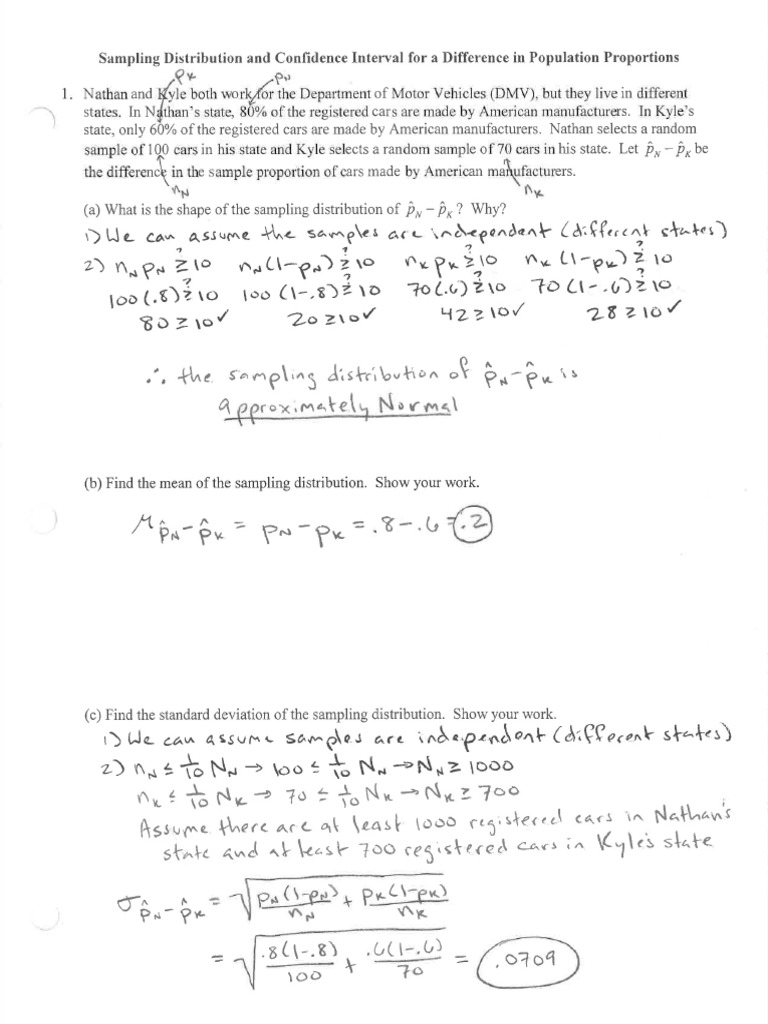 Sampling Distribution and Confidence Interval for a Difference in Population Proportions
pK pN
1. Nathan and Kyle both work for the Department of Motor Vehicles (DMV), but they live in different
states. In Nathan's state, 80% of the registered cars are made by American manufacturers. In Kyle's
state, only 60% of the registered cars are made by American manufacturers. Nathan selects a random
sample of 100 cars in his state and Kyle selects a random sample of 70 cars in his state. Let p̂N − p̂K be
the difference in the sample proportion of cars made by American manufacturers.
nN nK
(a) What is the shape of the sampling distribution of p̂N − p̂K ? Why?
1) We can assume the samples are independent (different states)
2) nN pN ≥? 10 nN(1-pN) ≥? 10 nK pK ≥? 10 nK (1-pK) ≥? 10
100(.8) ≥? 10 100 (1-.8) ≥? 10 70(.6) ≥? 10 70 (1-.6) ≥? 10
80 ≥ 10 ✓ 20 ≥ 10 ✓ 42 ≥ 10 ✓ 28 ≥ 10 ✓
∴ the sampling distribution of p̂N-p̂K is
approximately Normal
(b) Find the mean of the sampling distribution. Show your work.
μ p̂N-p̂K = pN - pK = .8 - .6 = .2
(c) Find the standard deviation of the sampling distribution. Show your work.
1) We can assume samples are independent (different states)
2) nN ≤ 1/10 NN → 100 ≤ 1/10 NN → NN ≥ 1000
nK ≤ 1/10 NK → 70 ≤ 1/10 NK → NK ≥ 700
Assume there are at least 1000 registered cars in Nathan's
state and at least 700 registered cars in Kyle's state
σ p̂N-p̂K = √( pN(1-pN)/nN + pK(1-pK)/nK )
= √( .8(1-.8)/100 + .6(1-.6)/70 ) = .0709